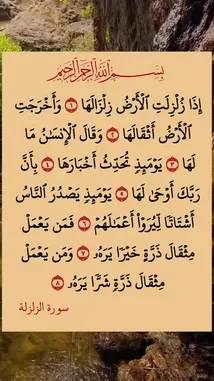 بِسْمِ اللَّهِ الرَّحْمَٰنِ الرَّحِيمِ
إِذَا زُلْزِلَتِ ٱلْأَرْضُ زِلْزَالَهَا ١ وَأَخْرَجَتِ
ٱلْأَرْضُ أَثْقَالَهَا ٢ وَقَالَ ٱلْإِنسَٰنُ مَا
لَهَا ٣ يَوْمَئِذٍ تُحَدِّثُ أَخْبَارَهَا ٤ بِأَنَّ
رَبَّكَ أَوْحَىٰ لَهَا ٥ يَوْمَئِذٍ يَصْدُرُ ٱلنَّاسُ
أَشْتَاتًا لِّيُرَوْا۟ أَعْمَٰلَهُمْ ٦ فَمَن يَعْمَلْ
مِثْقَالَ ذَرَّةٍ خَيْرًا يَرَهُۥ ٧ وَمَن يَعْمَلْ
مِثْقَالَ ذَرَّةٍ شَرًّا يَرَهُۥ ٨
سورة الزلزلة